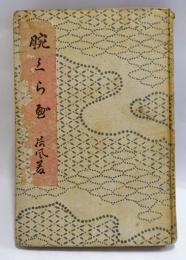 腕くらべ
荷風著